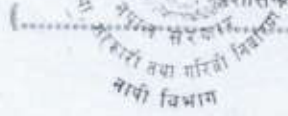 नेपाल सरकार
सहकारी तथा गरिवी निवारण
नापी विभाग